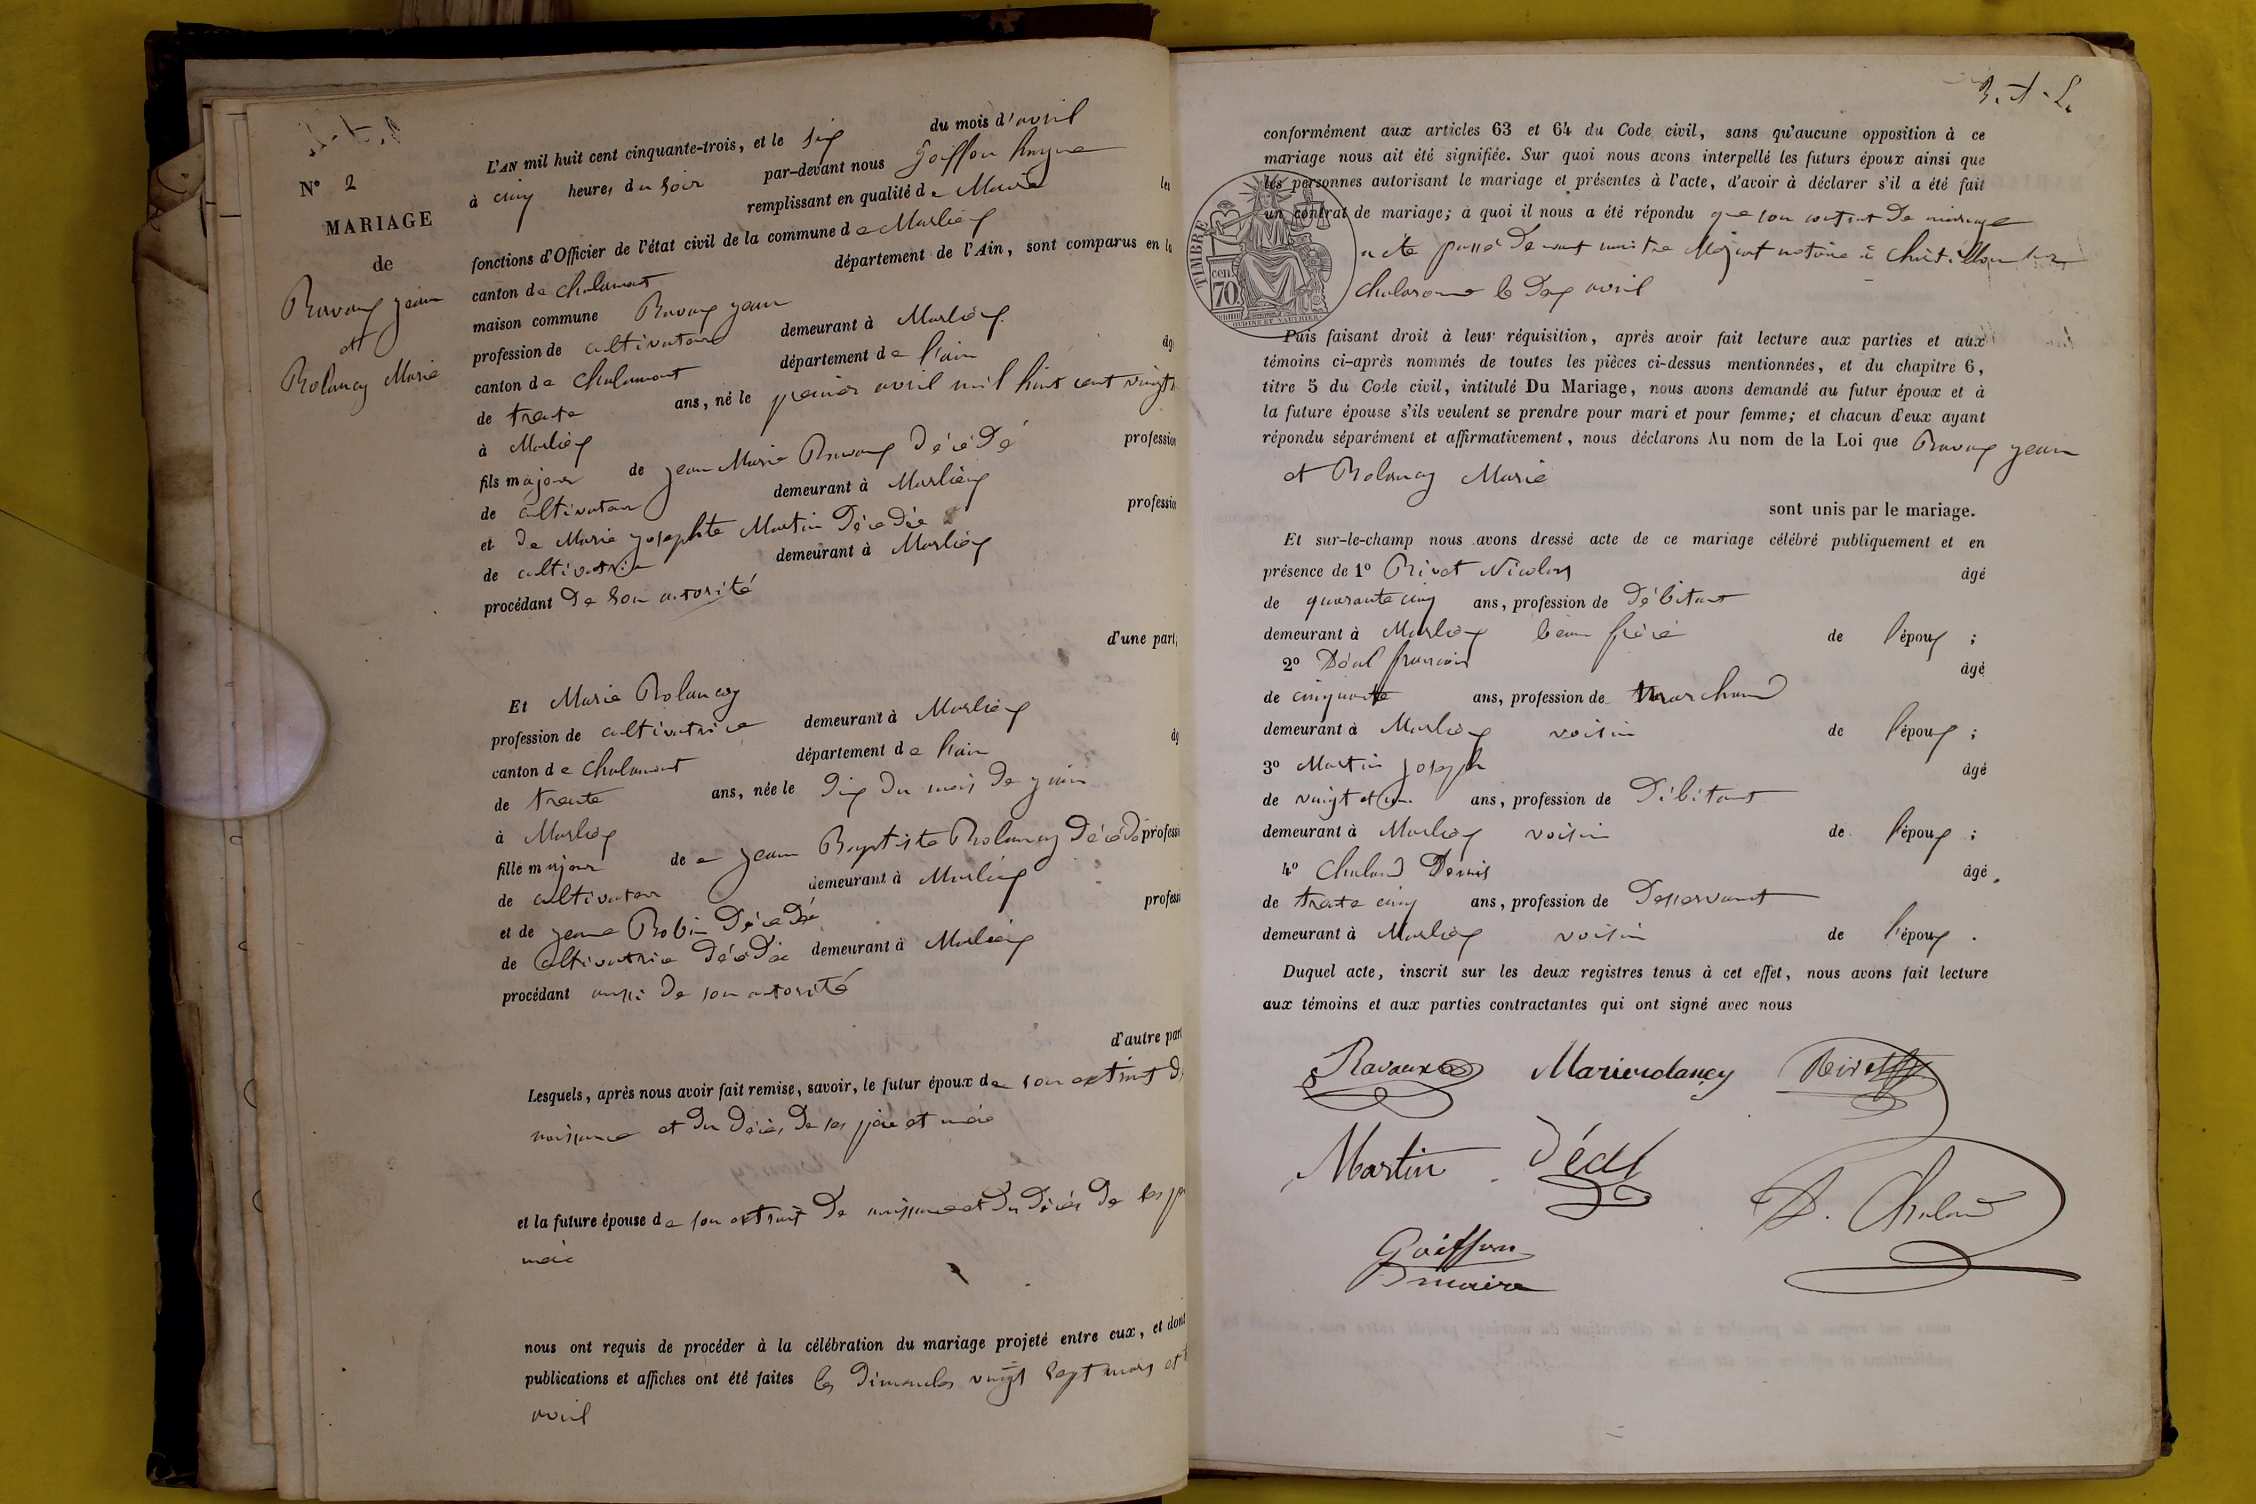 N° 2
MARIAGE
de
Ravaux jean
et
Rolancy Marie
L'AN mil huit cent cinquante-trois, et le six du mois d'avril
à cinq heures du soir par-devant nous Goiffon
remplissant en qualité de Maire les
fonctions d'Officier de l'état civil de la commune de Marlieux
canton de chalamont département de l'Ain, sont comparus en la
maison commune Ravaux jean
profession de cultivateur demeurant à Marlieux
canton de chalamont département de l'ain âgé
de trente ans, né le premier avril mil huit cent vingt
à Marlieux
fils majeur de jean Marie Ravaux décédé profession
de cultivateur demeurant à Marlieux
et de Marie josephte Martin décédée profession
de cultivatrice demeurant à Marlieux
procédant de son autorité
d'une part;
Et Marie Rolancy
profession de cultivatrice demeurant à Marlieux
canton de chalamont département de l'ain âg
de trente ans, née le dix du mois de juin
à Marlieux
fille majeur de e jean Baptiste Rolancy décédé professi
de cultivateur demeurant à Marlieux
et de jeane Robin décédé professi
de cultivatrice décédée demeurant à Marlieux
procédant aussi de son autorité
d'autre part
Lesquels, après nous avoir fait remise, savoir, le futur époux de son extrait d
naissance et du décès de ses père et mère
et la future épouse de son extrait de naissance et du décès de ses p
mère
nous ont requis de procéder à la célébration du mariage projeté entre eux, et dont
publications et affiches ont été faites les dimanches vingt sept mars et t
avril
conformément aux articles 63 et 64 du Code civil, sans qu'aucune opposition à ce
mariage nous ait été signifiée. Sur quoi nous avons interpellé les futurs époux ainsi que
les personnes autorisant le mariage et présentes à l'acte, d'avoir à déclarer s'il a été fait
un contrat de mariage; à quoi il nous a été répondu que son contrat de mariage
a été passé devant maitre notaire à chatillon sur
chalaronne le dix avril
TIMBRE
cen
70
OUDINÉ ET VAUTHIER
Puis faisant droit à leur réquisition, après avoir fait lecture aux parties et aux
témoins ci-après nommés de toutes les pièces ci-dessus mentionnées, et du chapitre 6,
titre 5 du Code civil, intitulé Du Mariage, nous avons demandé au futur époux et à
la future épouse s'ils veulent se prendre pour mari et pour femme; et chacun d'eux ayant
répondu séparément et affirmativement, nous déclarons Au nom de la Loi que Ravaux jean
et Rolancy Marie
sont unis par le mariage.
Et sur-le-champ nous avons dressé acte de ce mariage célébré publiquement et en
présence de 1° Rivet Nicolas âgé
de quarante cinq ans, profession de débitant
demeurant à Marlieux beau frère de l'époux ;
2° Déal francois âgé
de cinquante ans, profession de marchand
demeurant à Marlieux voisin de l'époux ;
3° Martin joseph âgé
de vingt et un ans, profession de débitant
demeurant à Marlieux voisin de l'époux ;
4° Chaland Denis âgé
de trente cinq ans, profession de Desservant
demeurant à Marlieux voisin de l'époux .
Duquel acte, inscrit sur les deux registres tenus à cet effet, nous avons fait lecture
aux témoins et aux parties contractantes qui ont signé avec nous
Ravaux Marierolancy Rivet
Martin Déal
D. Chaland
Goiffon
maire